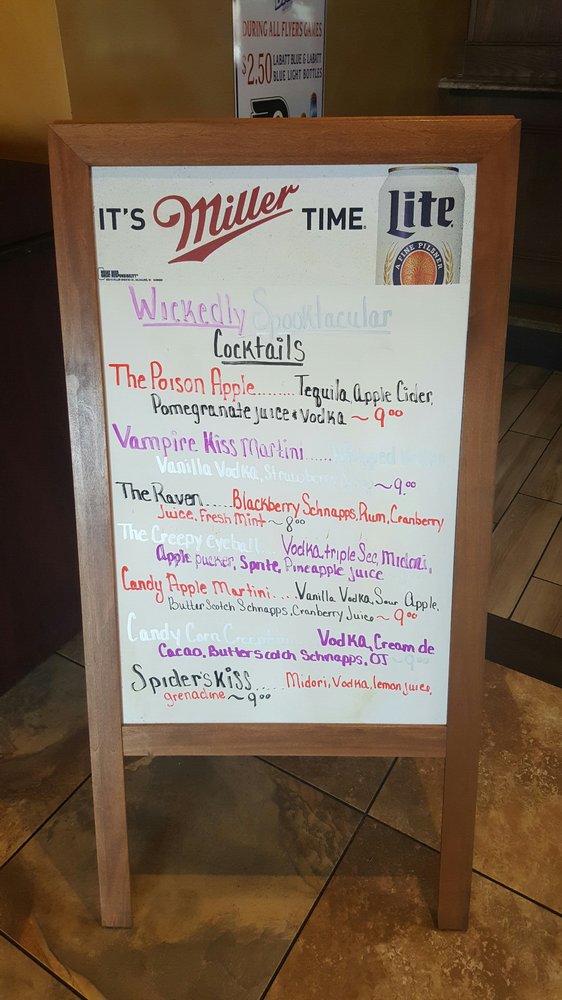 DURING ALL FLYERS GAMES
$2.50 LABATT BLUE & LABATT
BLUE LIGHT BOTTLES
IT'S Miller TIME.
Lite
A FINE PILSNER
Wickedly Spooktacular
Cocktails
The Poison Apple........Tequila, Apple Cider,
Pomegranate juice & Vodka ~ 9.00
Vampire Kiss Martini......Whipped
Vanilla Vodka, Strawberry ~ 9.00
The Raven.....Blackberry Schnapps, Rum, Cranberry
Juice, Fresh Mint ~ 8.00
The Creepy Eyeball... Vodka, triple Sec, Midori,
Apple pucker, Sprite, Pineapple juice
Candy Apple Martini....Vanilla Vodka, Sour Apple,
Butterscotch Schnapps, Cranberry Juice ~ 9.00
Candy Corn Vodka, Cream de
Cacao, Butterscotch Schnapps, OJ ~ 9.00
Spider's Kiss...... Midori, Vodka, lemon juice,
grenadine ~ 9.00